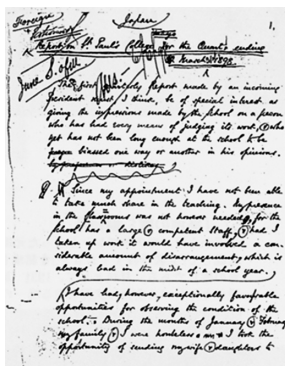 Foreign
Japan
1.
Report on St. Paul's College for the Quarter ending
March 31 1898.
The first Quarterly Report made by an incoming
President must, I think, be of special interest as
giving the impressions made by the school on a person
who has had every means of judging its work, & who
yet has not been long enough at the school to be
biassed one way or another in his opinions.
Since my appointment I have not been able
to take much share in the teaching. My presence
in the classrooms was not however needed, for the
school has a large & competent staff, & had I
taken up work it would have involved a con-
siderable amount of disarrangement, which is
always bad in the midst of a school year.
I have had, however, exceptionally favorable
opportunities for observing the condition of the
school. During the months of January & February
my family & I were homeless & I took the
opportunity of sending my wife & daughters to